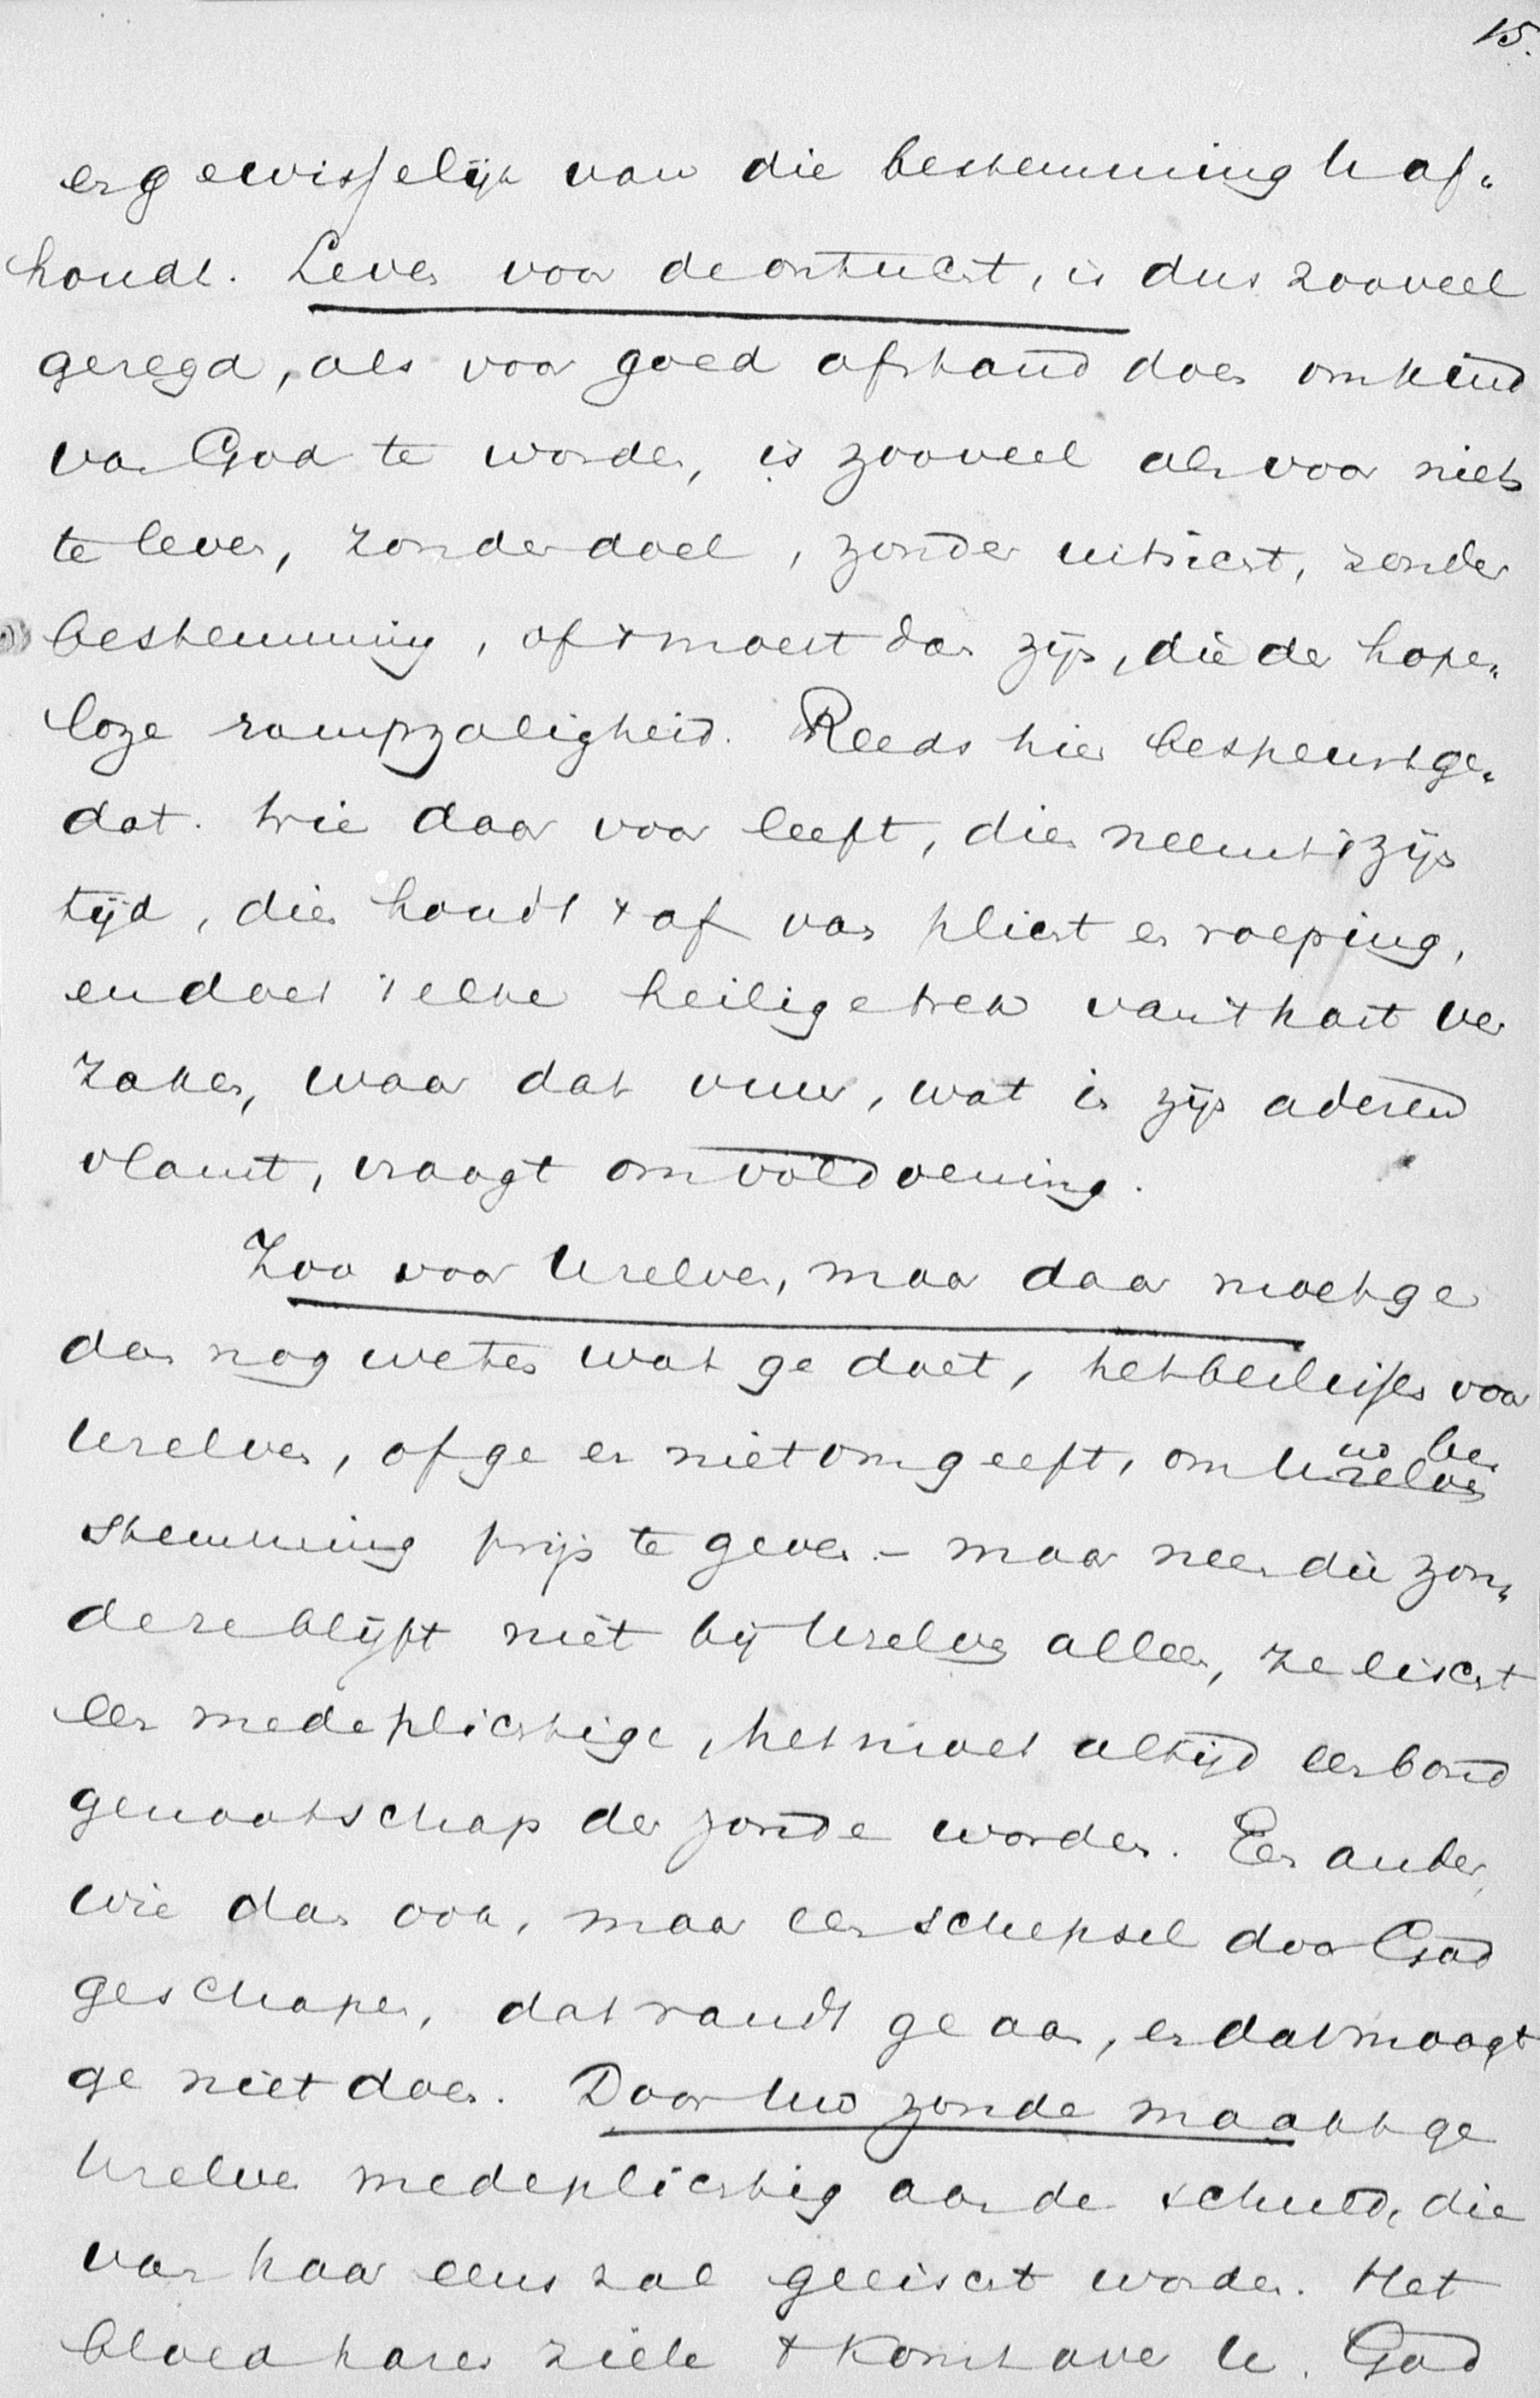 15.
en gewisselijk van die bestemming U af„
houdt. Leven voor de ontucht, is dus zooveel
gezegd, als voor goed afstand doen om kind
van God te worden, is zooveel als voor niets
te leven, zonder doel, zonder uitzicht, zonder
bestemming, of 't moest dan zijn, die der hope„
loze rampzaligheid. Reeds hier bespeurt ge„
dat. Wie daar voor leeft, dien neemt 't zijn
tijd, dien houdt 't af van plicht en roeping,
en doet 't elke heilige trek van 't hart ver
zaken, waar dat vuur, wat in zijn aderen
vlamt, vraagt om voldoening.
Zoo voor Uzelven, maar daar moet ge
dan nog weten wat ge doet, het beslissen voor
Uzelven, of ge er niet om geeft, om Uw be
stemming prijs te geven – maar neen die zon„
de ze blijft niet bij Uzelven alleen, ze eischt
een medeplichtige, het moet altijd een bond
genootschap der zonde worden. Een ander,
wie dan ook, maar een schepsel door God
geschapen, dat randt ge aan, en dat moogt
ge niet doen. Door Uw zonde maakt ge
Uzelven medeplichtig aan de schuld, die
van haar eens zal geeischt worden. Het
bloed harer ziele 't komt over U. God